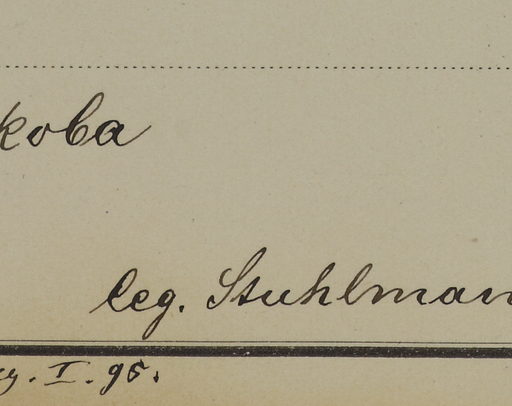 koba
leg. Stuhlman
. I. 95.